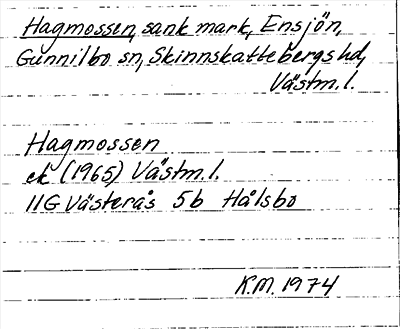 Hagmossen, sank mark, Ensjön,
Gunnilbo sn, Skinnskattebergs hd,
Västm. l.
Hagmossen
ek (1965) Västm. l.
11G Västerås 5b Hålsbo
K.M. 1974